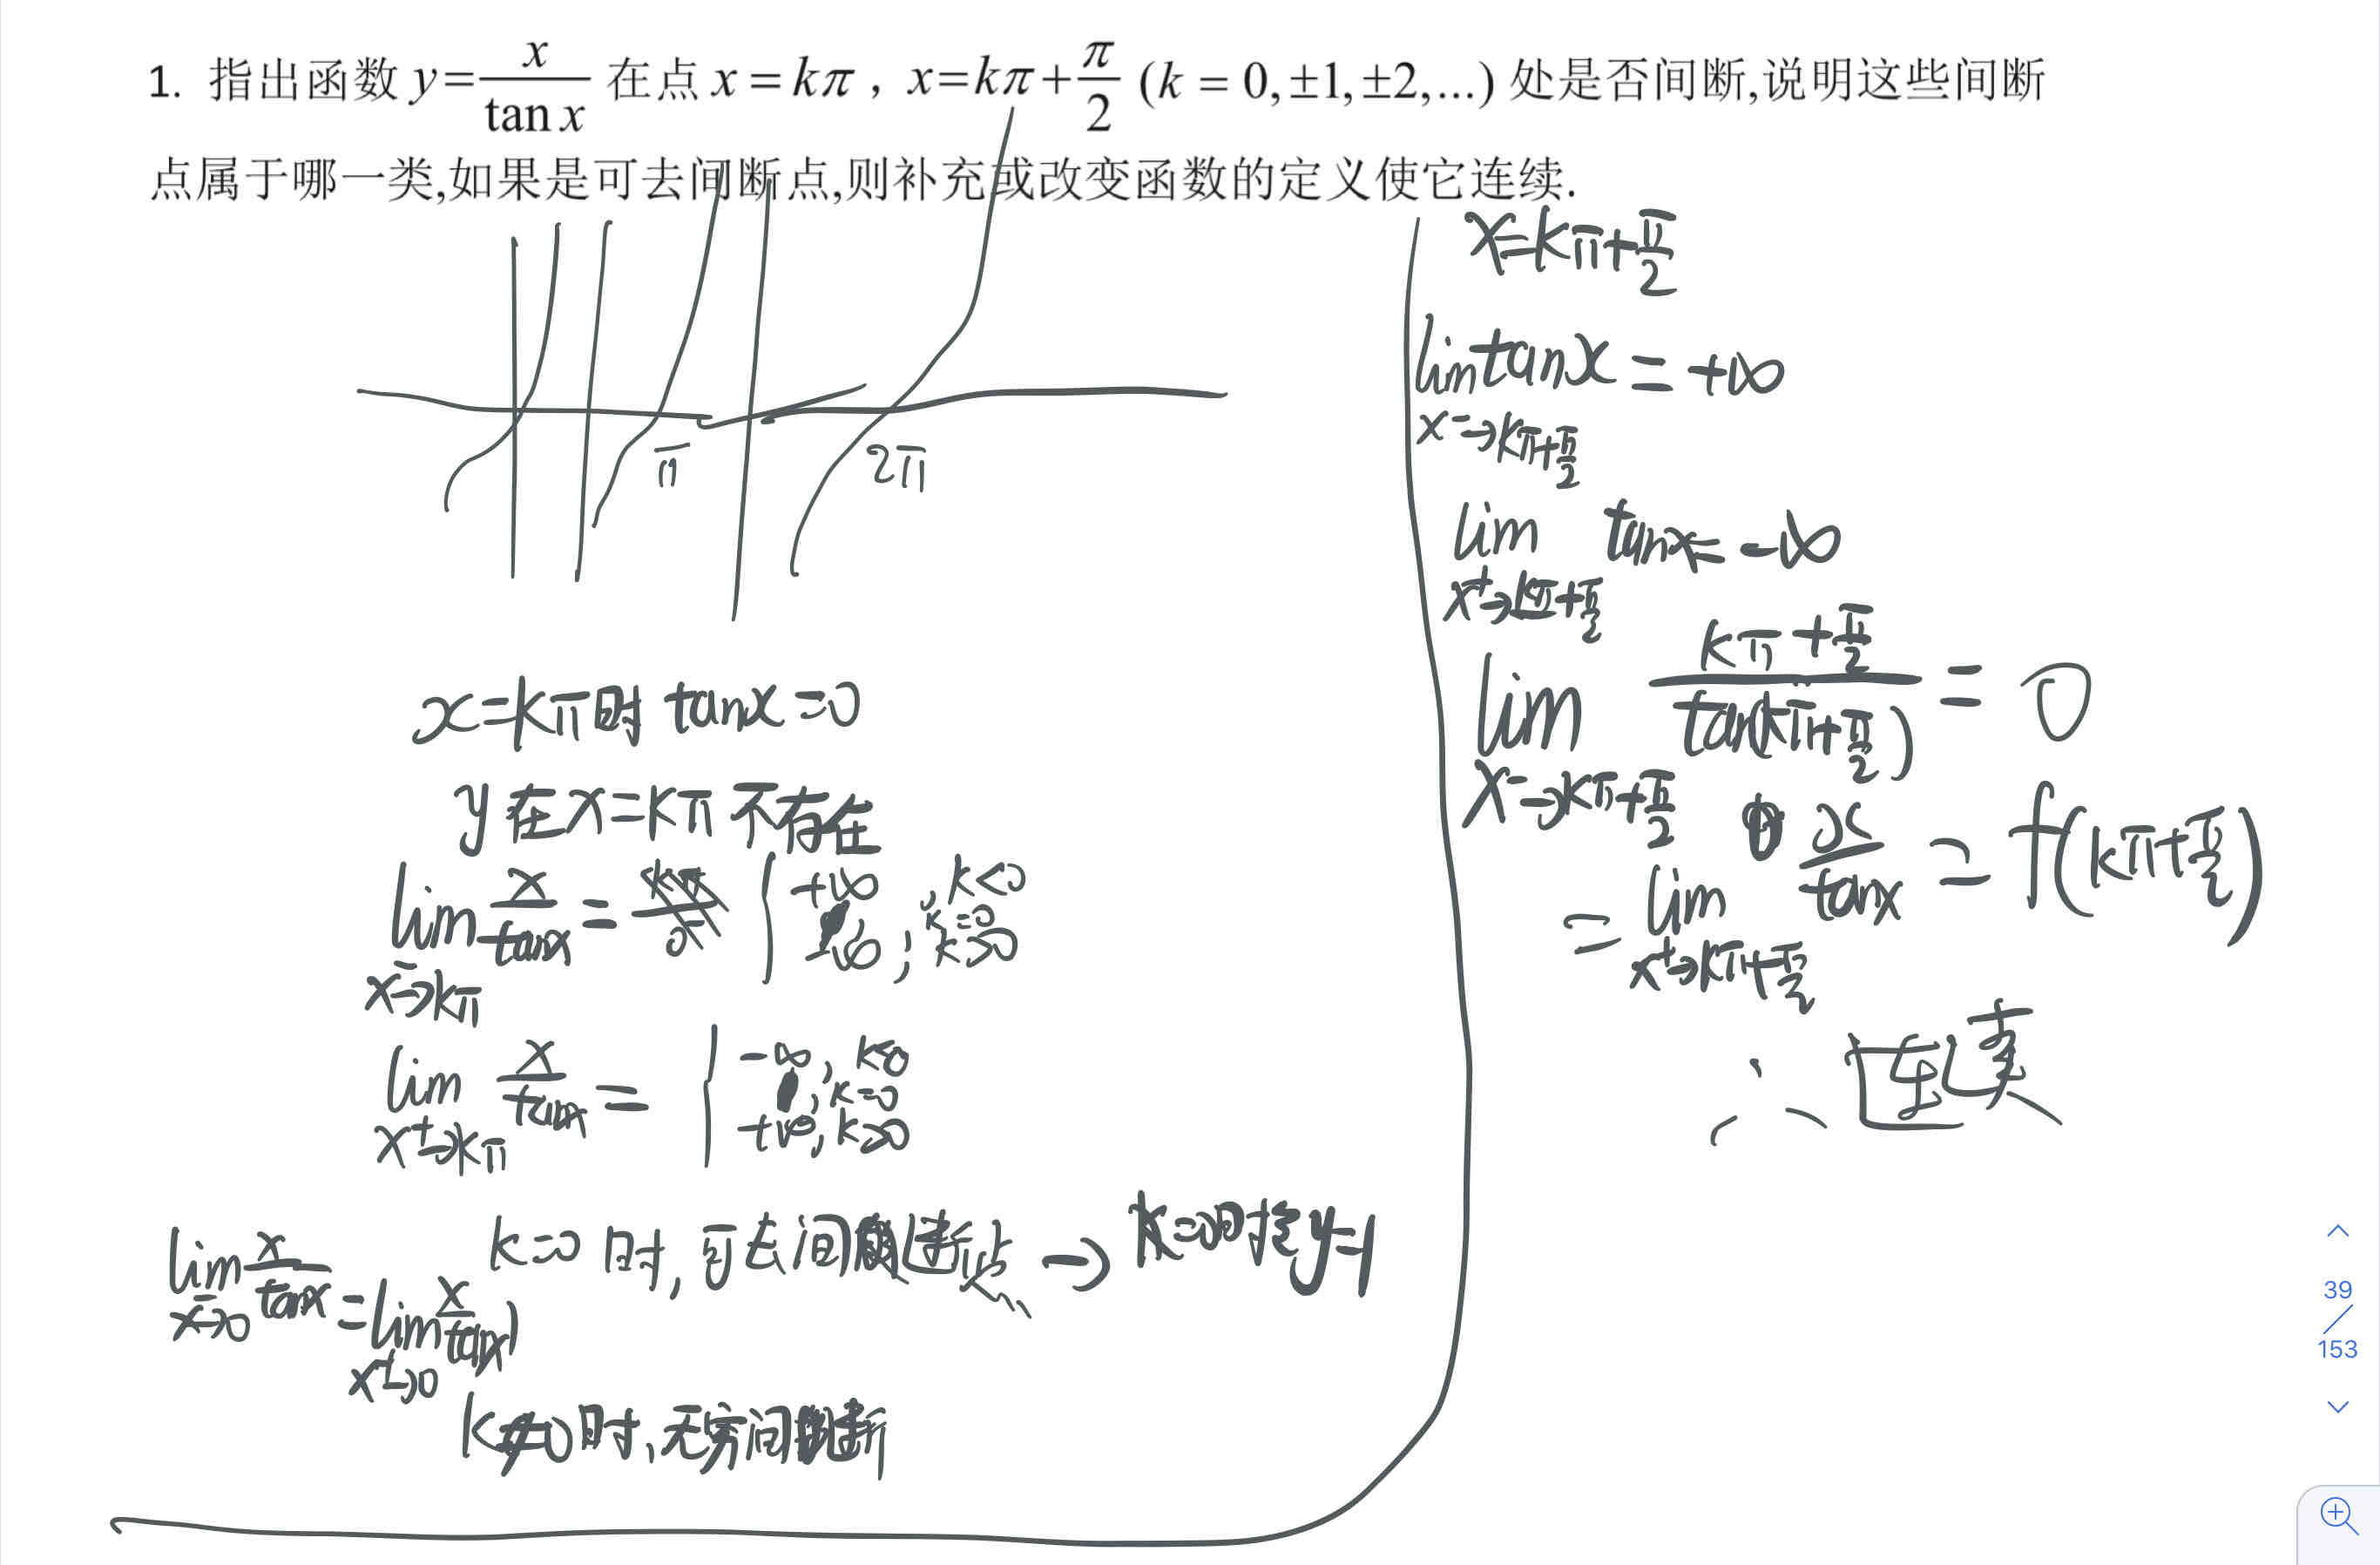 1. 指出函数 y = x/tan x 在点 x = kπ , x = kπ + π/2 (k = 0,±1,±2,...) 处是否间断,说明这些间断
点属于哪一类,如果是可去间断点,则补充或改变函数的定义使它连续.
π
2π
x=kπ时 tanx=0
y在x=kπ不存在
lim x⁻→kπ x/tanx = { +∞, k<0
k=0
-∞, k>0
lim x⁺→kπ x/tanx = { -∞, k<0
k=0
+∞, k>0
k=0时,可去间断点 → k=0时定y=1
lim x⁻→0 x/tanx = lim x⁺→0 x/tanx
k≠0时,无穷间断
x=kπ+π/2
lim x⁻→kπ+π/2 tanx = +∞
lim x⁺→kπ+π/2 tanx = -∞
lim x⁻→kπ+π/2 (kπ+π/2)/tan(kπ+π/2) = 0
= lim x⁺→kπ+π/2 x/tanx = f(kπ+π/2)
∴ 连续
39
/
153